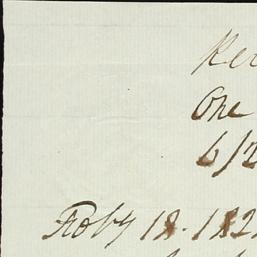 Rec
One
6/2
Feby 18. 182